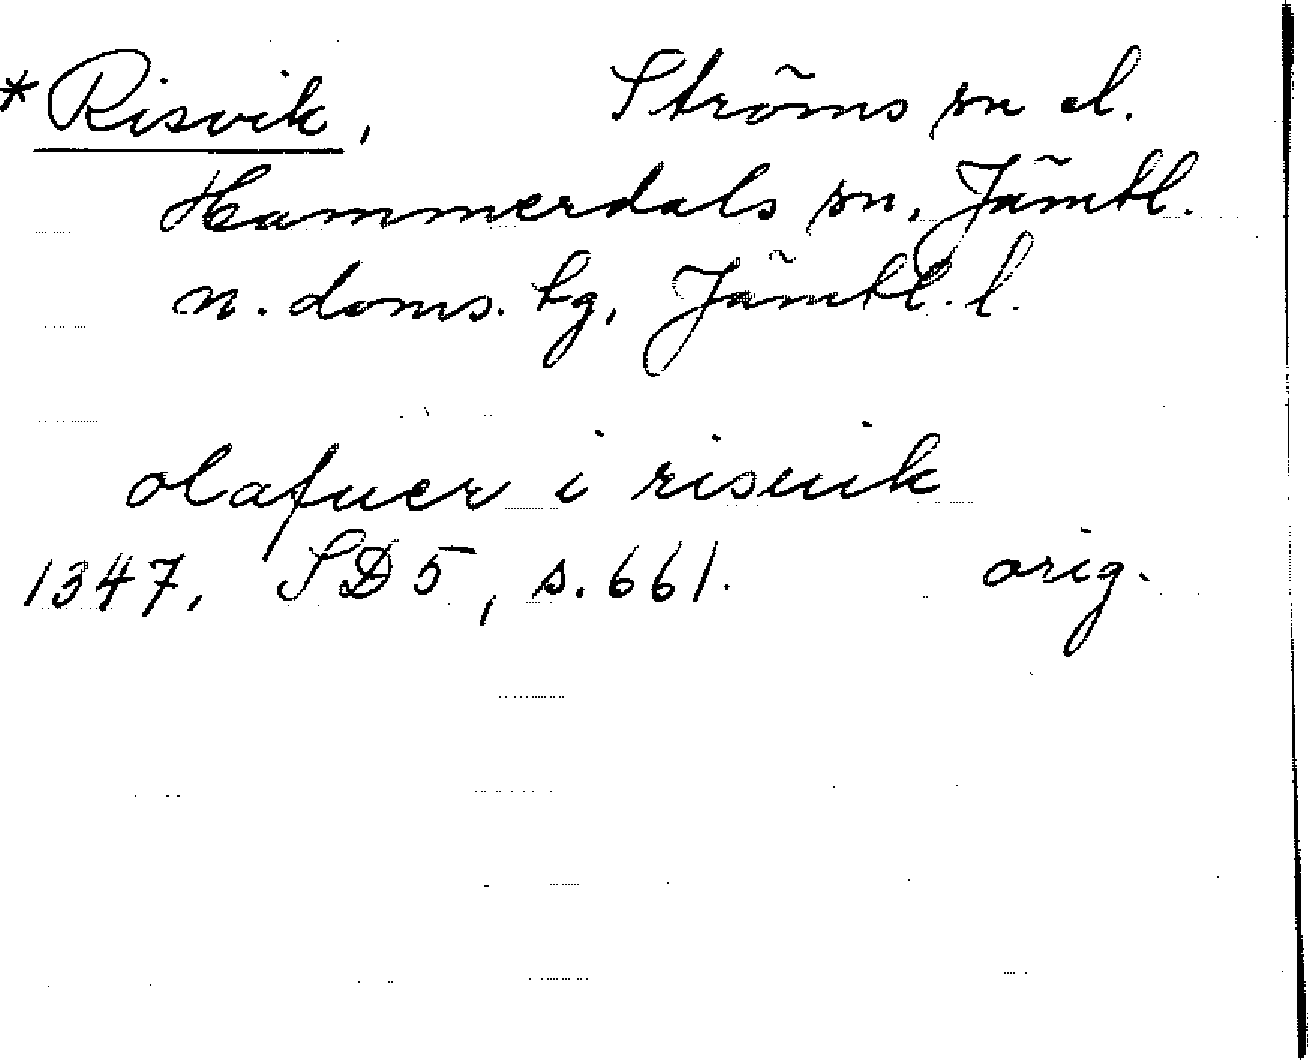 *Risvik, Ströms sn el.
Hammerdals sn, Jämtl.
n. doms. tg, Jämtl. l.
olafuer i risuik
1347. SD 5, s. 661. orig.